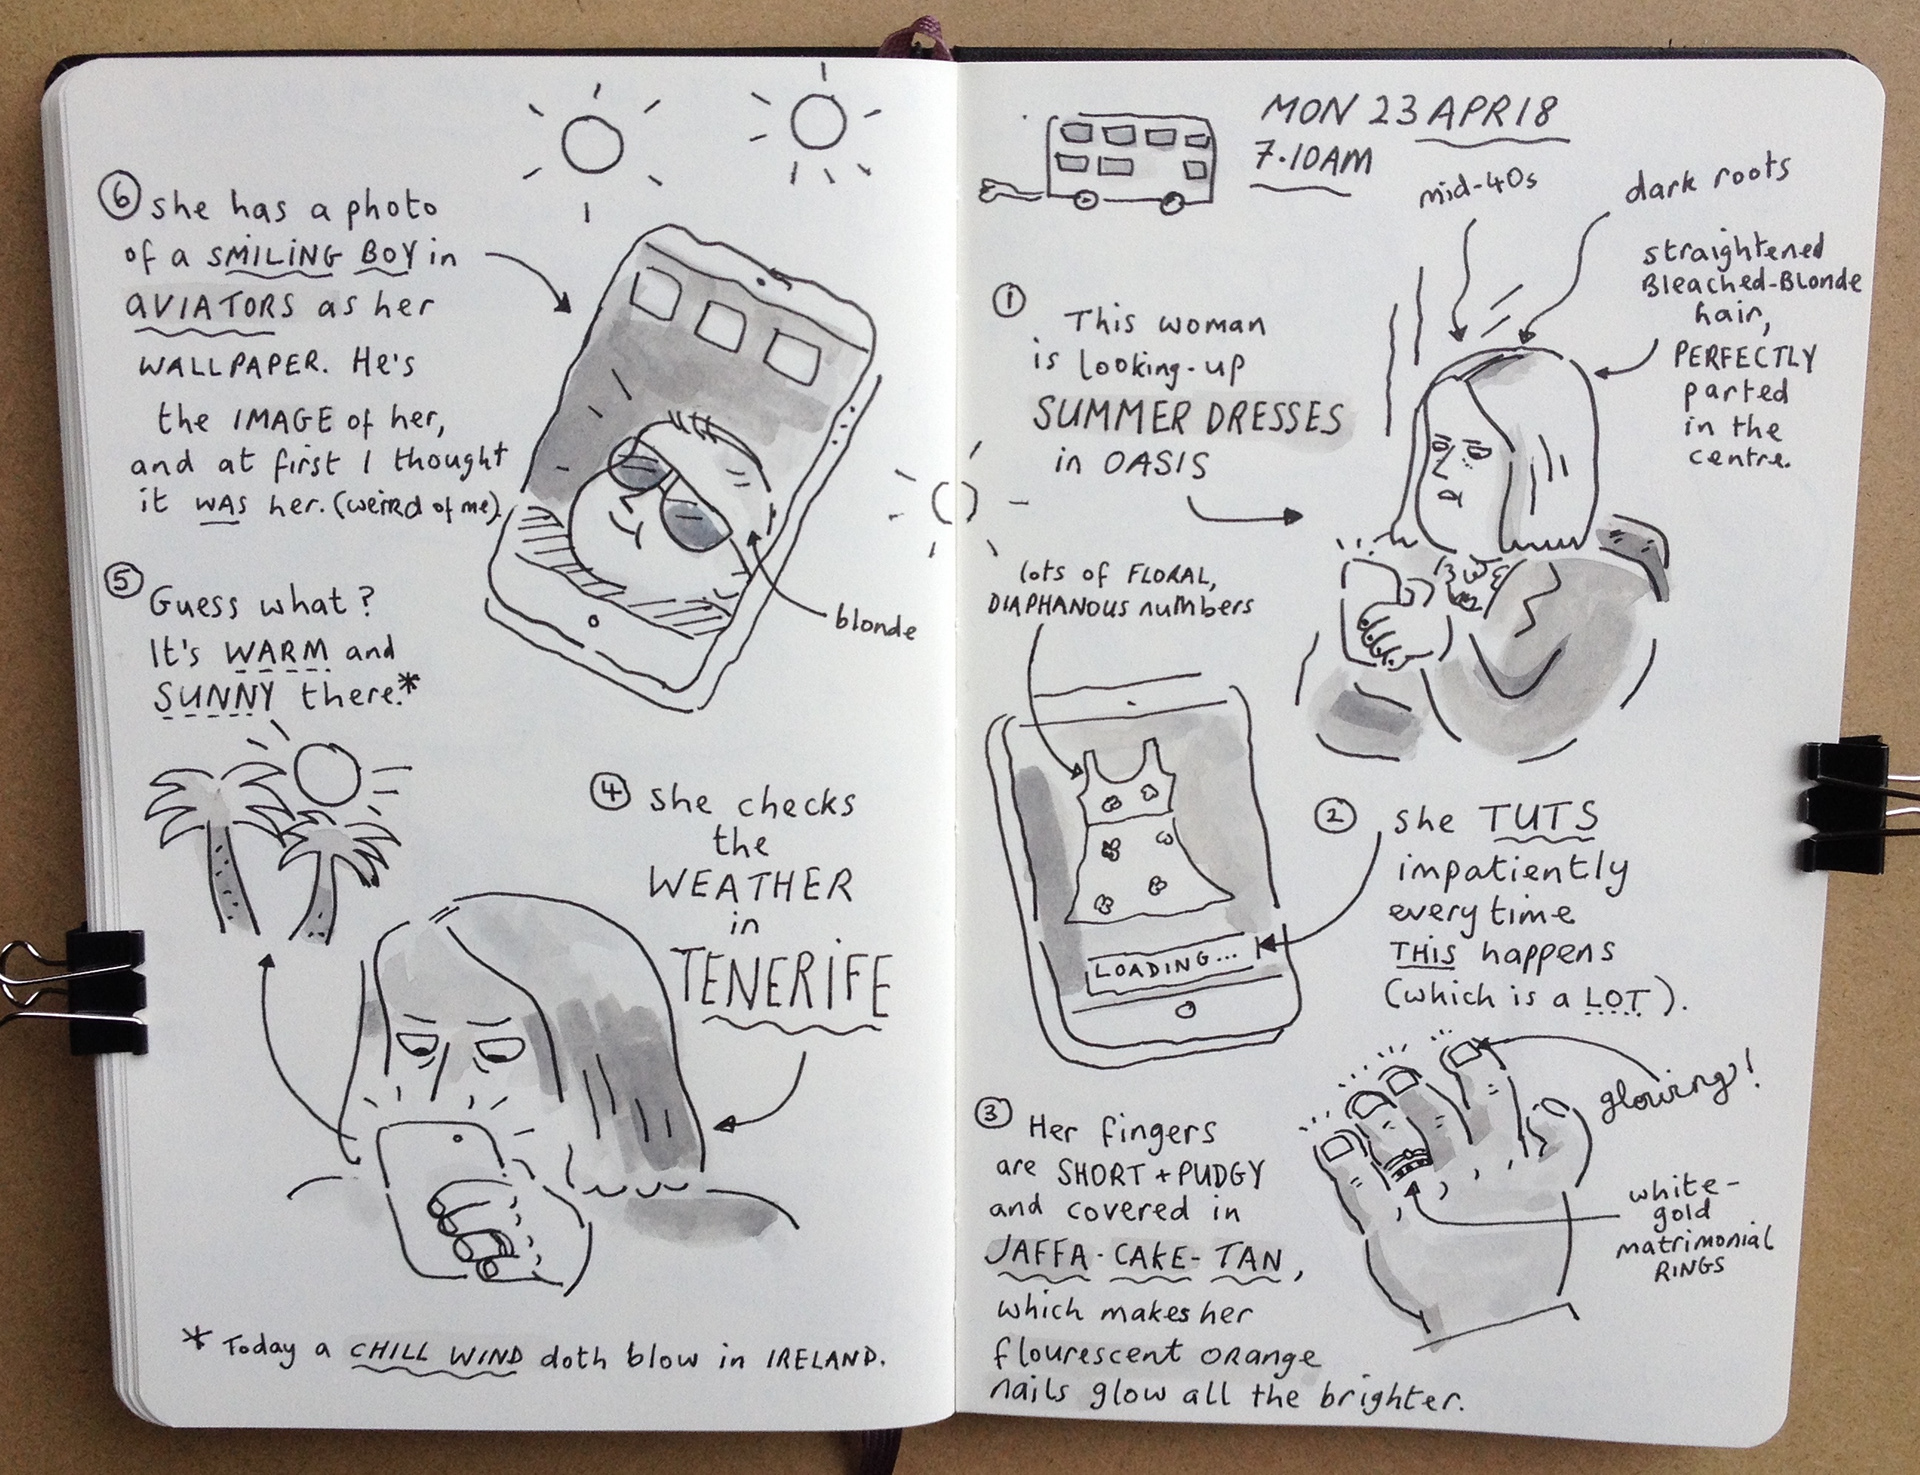 MON 23 APR 18
7.10AM
mid-40s
dark roots
straightened
Bleached-Blonde
hair,
PERFECTLY
parted
in the
centre.
① This woman
is looking-up
SUMMER DRESSES
in OASIS
lots of FLORAL,
DIAPHANOUS numbers
LOADING...
② she TUTS
impatiently
every time
THIS happens
(which is a LOT).
③ Her fingers
are SHORT + PUDGY
and covered in
JAFFA-CAKE-TAN,
which makes her
flourescent orange
nails glow all the brighter.
glowing!
white-
gold
matrimonial
RINGS
④ she checks
the
WEATHER
in
TENERIFE
⑤ Guess what?
It's WARM and
SUNNY there.*
⑥ she has a photo
of a SMILING BOY in
AVIATORS as her
WALLPAPER. He's
the IMAGE of her,
and at first I thought
it WAS her. (weird of me).
blonde
* Today a CHILL WIND doth blow in IRELAND.